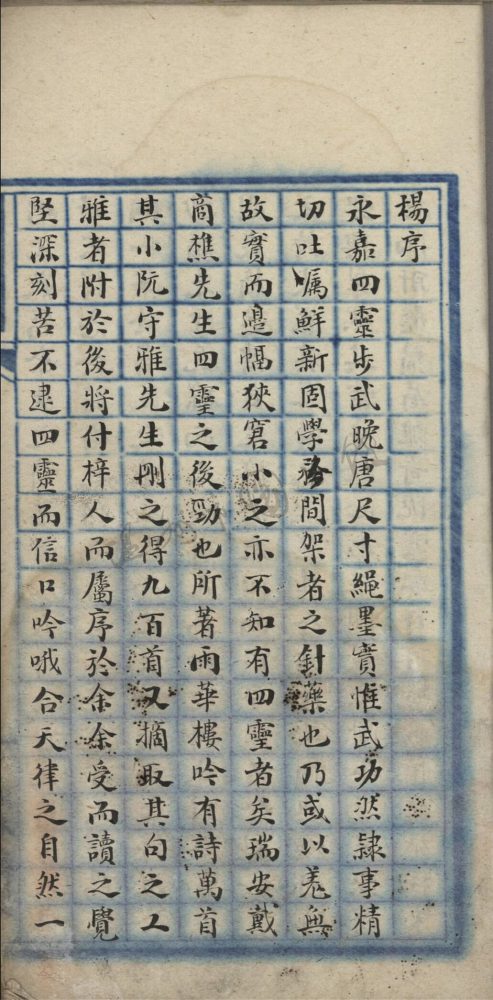 楊序
永嘉四靈步武晚唐尺寸繩墨實惟武功然隷事精
切吐屬鮮新固學務間架者之針藥也乃或以羌無
故實而邊幅狹窘小之亦不知有四靈者矣瑞安戴
商樵先生四靈之後勁也所著雨華樓吟有詩萬首
其小阮守雅先生刪之得九百首又摘取其句之工
雅者附於後將付梓人而屬序於余余受而讀之覺
堅深刻苦不逮四靈而信口吟哦合天律之自然一